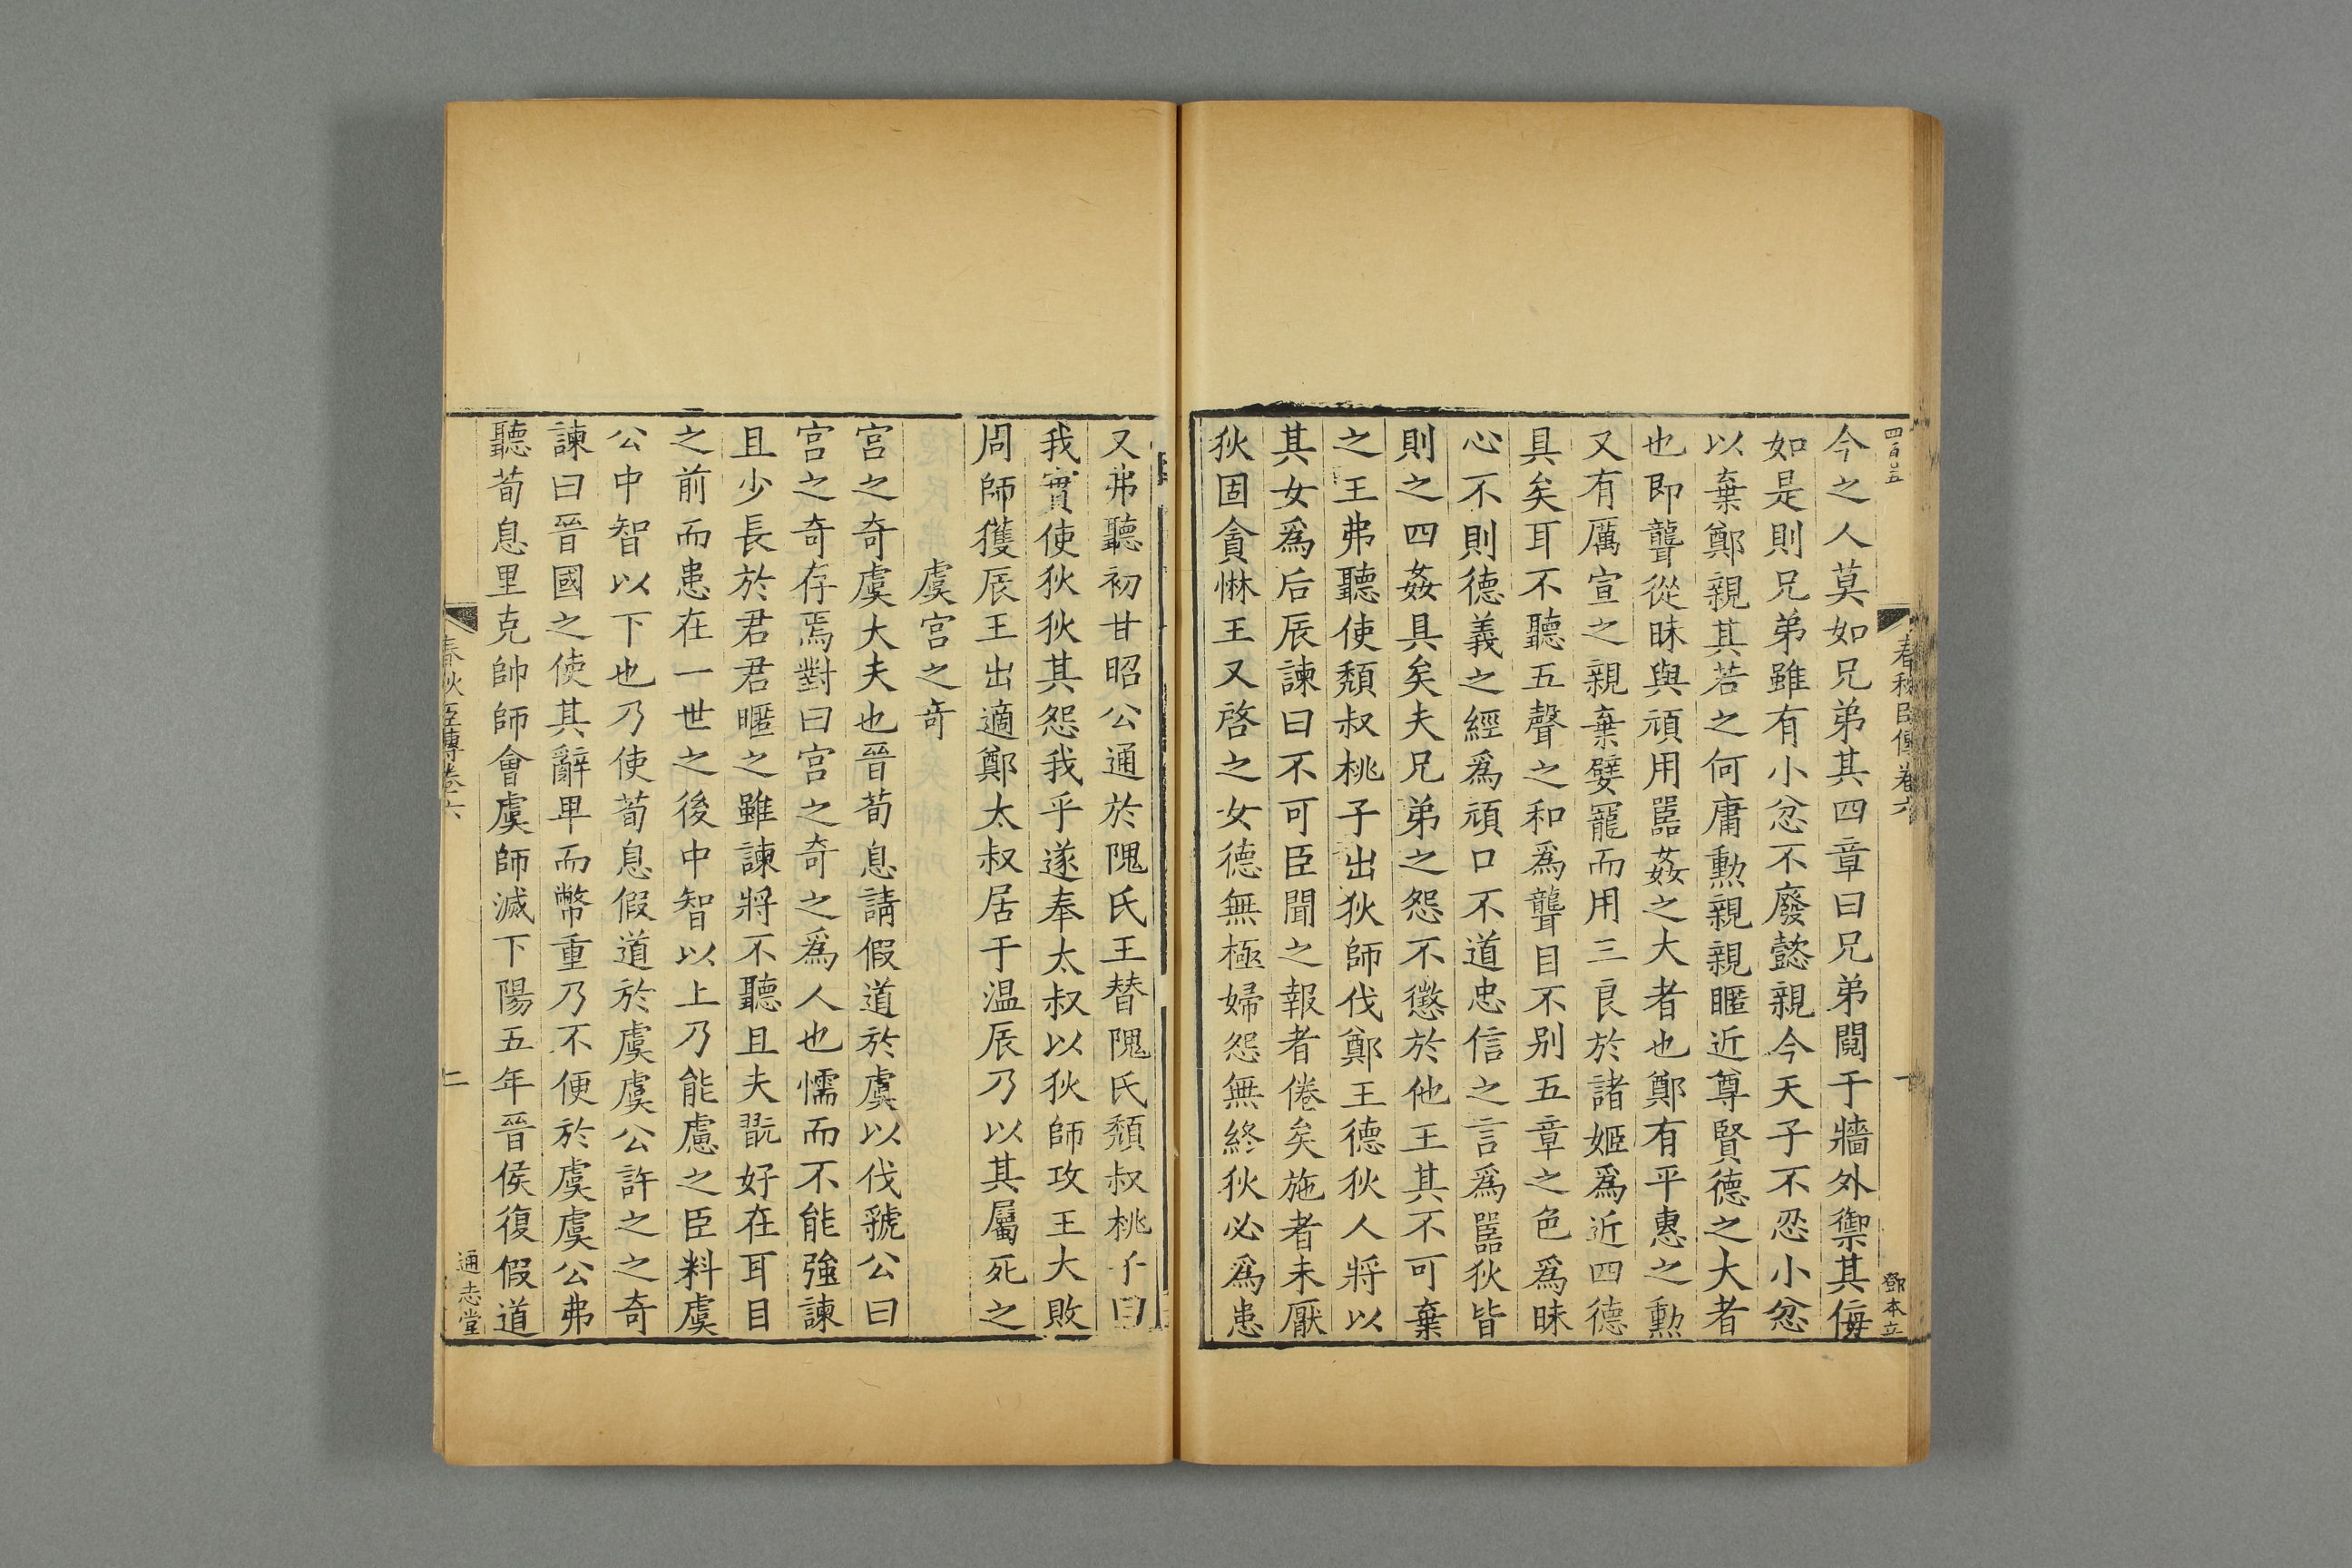 四百五
春秋臣傳卷六
一
鄧本立
今之人莫如兄弟其四章曰兄弟鬩于牆外禦其侮
如是則兄弟雖有小忿不廢懿親今天子不忍小忿
以棄鄭親其若之何庸勲親親暱近尊賢德之大者
也即聾從昧與頑用嚚姦之大者也鄭有平惠之勲
又有厲宣之親棄嬖寵而用三良於諸姬爲近四德
具矣耳不聽五聲之和爲聾目不别五章之色爲昧
心不則德義之經爲頑口不道忠信之言爲嚚狄皆
則之四姦具矣夫兄弟之怨不懲於他王其不可棄
之王弗聽使頽叔桃子出狄師伐鄭王德狄人將以
其女爲后辰諫曰不可臣聞之報者倦矣施者未厭
狄固貪惏王又啓之女德無極婦怨無終狄必爲患
又弗聽初甘昭公通於隗氏王替隗氏頽叔桃子曰
我實使狄狄其怨我乎遂奉太叔以狄師攻王大敗
周師獲辰王出適鄭太叔居于温辰乃以其屬死之
虞宫之奇
宫之奇虞大夫也晉荀息請假道於虞以伐虢公曰
宫之奇存焉對曰宫之奇之爲人也懦而不能強諫
且少長於君君暱之雖諫將不聽且夫翫好在耳目
之前而患在一世之後中智以上乃能慮之臣料虞
公中智以下也乃使荀息假道於虞虞公許之之奇
諫曰晉國之使其辭卑而幣重乃不便於虞虞公弗
聽荀息里克帥師會虞師滅下陽五年晉侯復假道
春秋臣傳卷六
二
通志堂